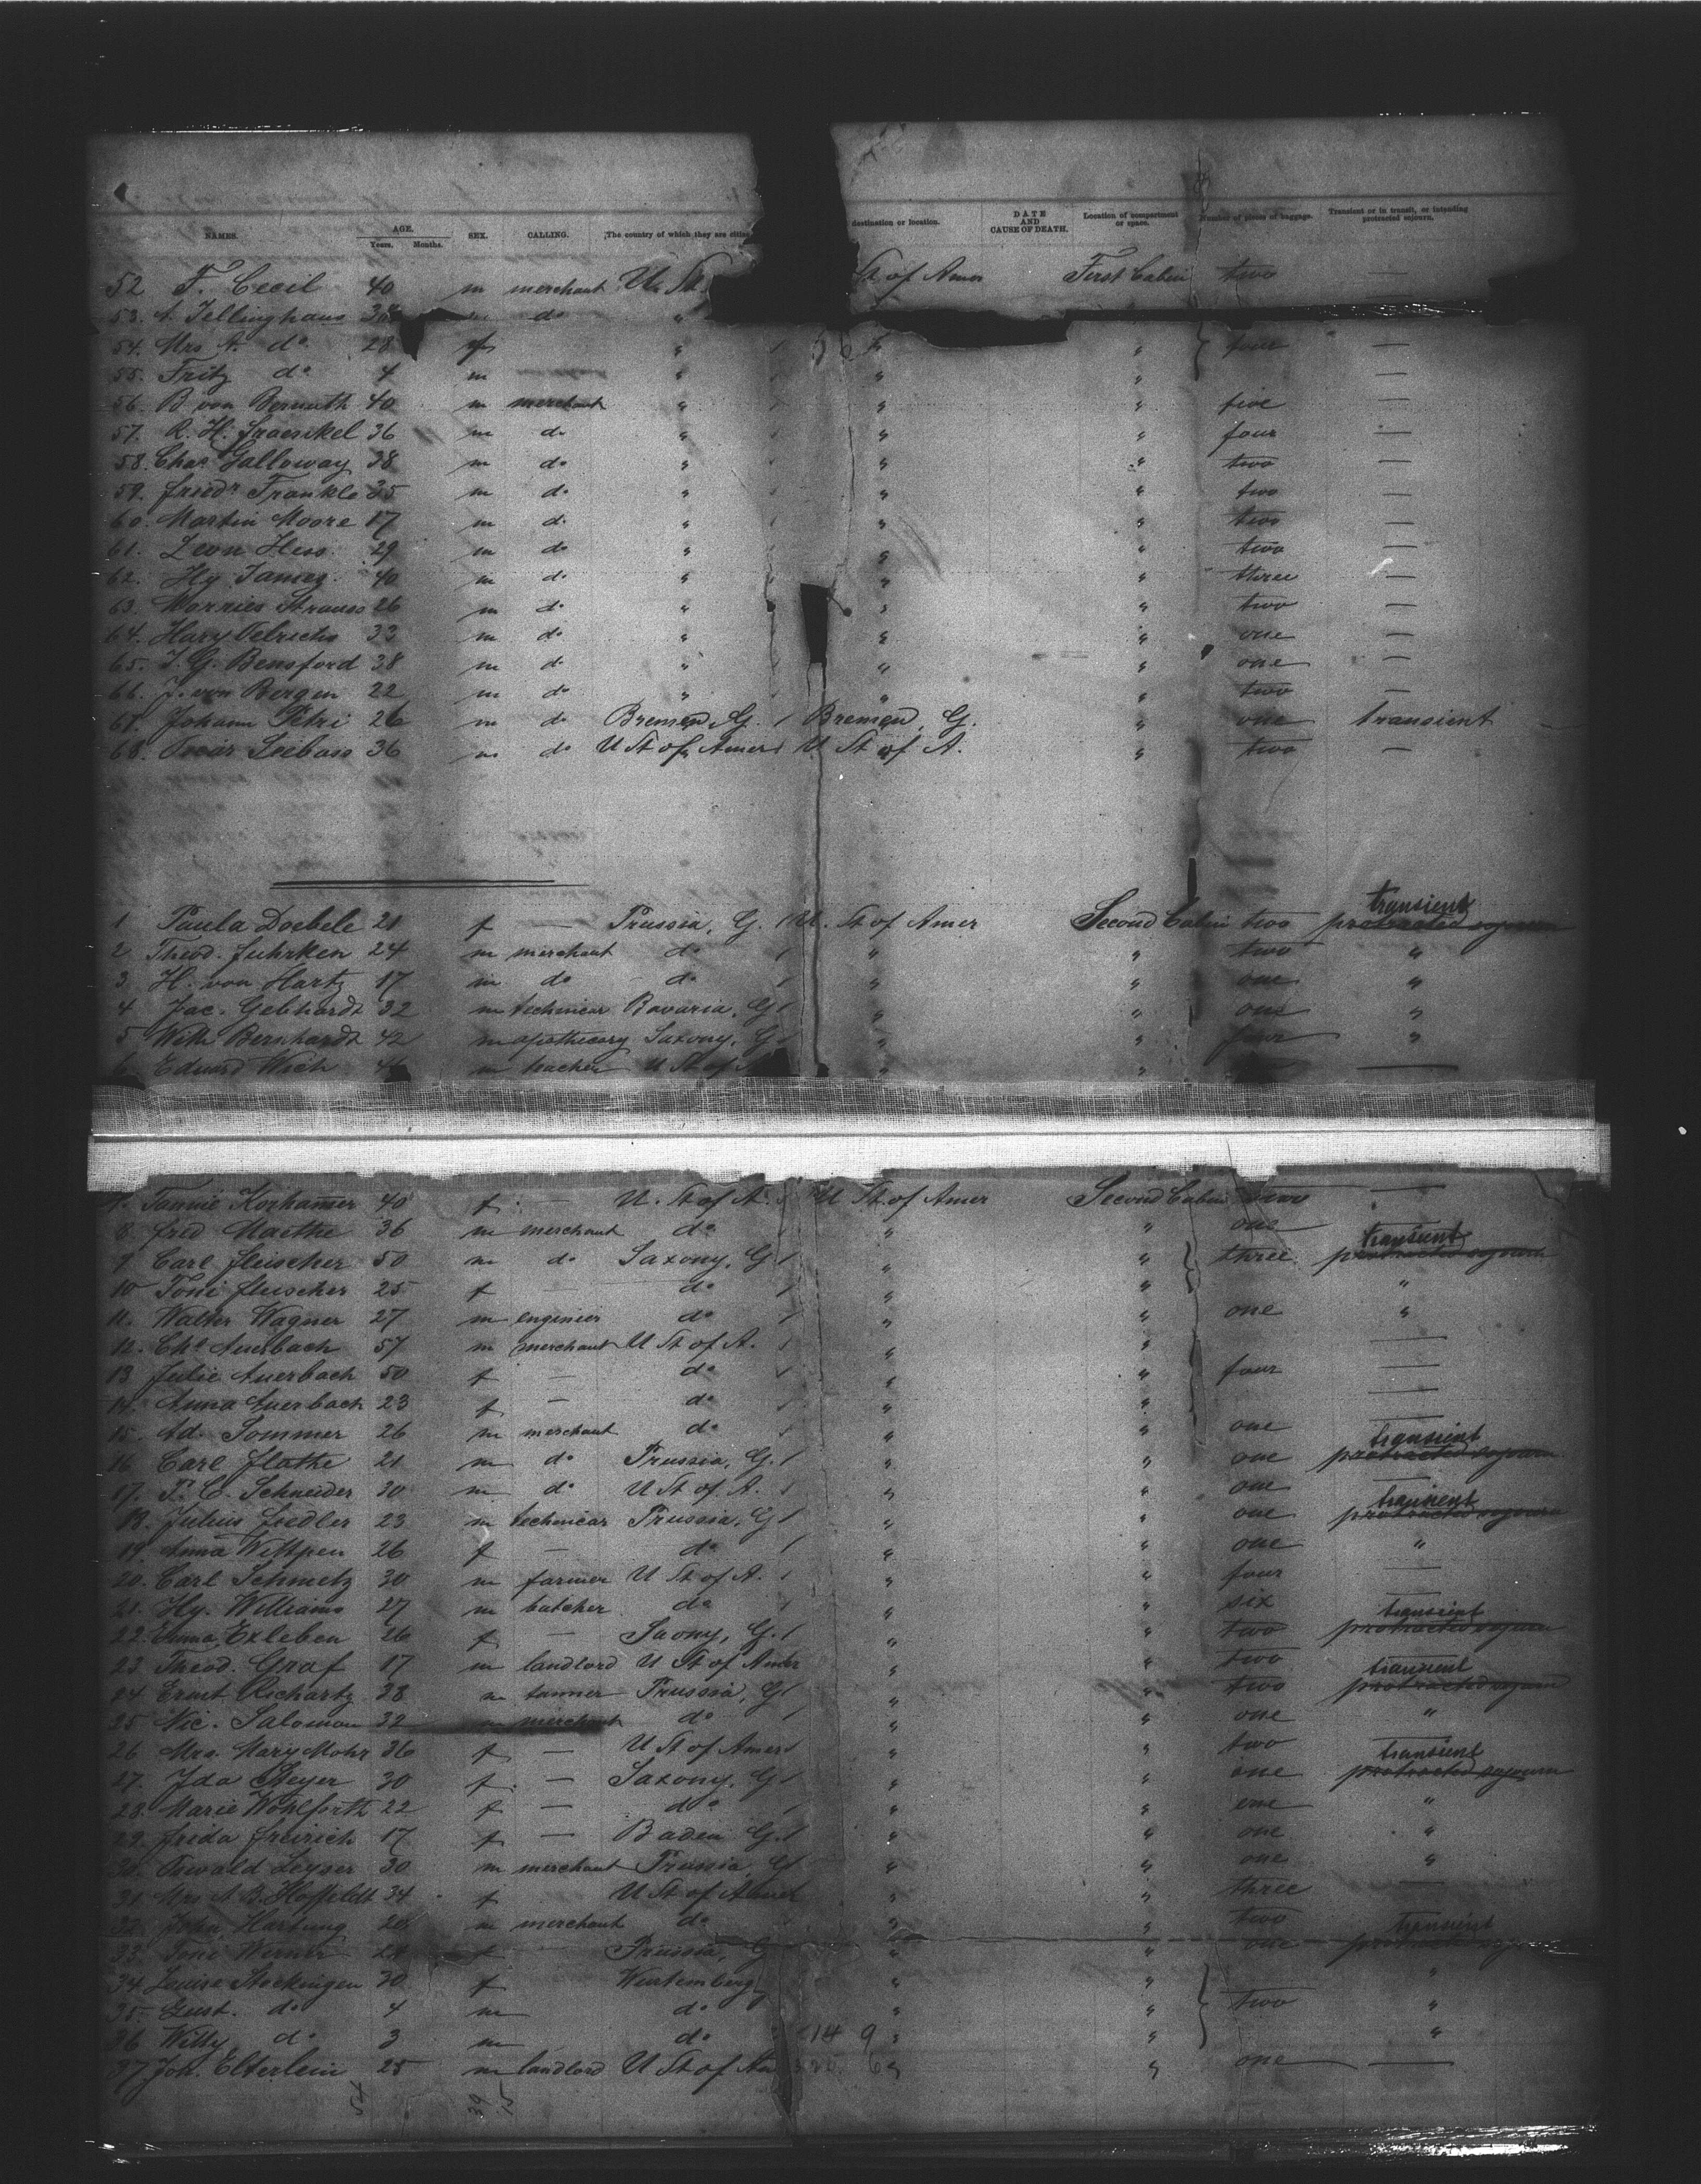 NAMES. AGE. Years. Months. SEX. CALLING. The country of which they are citizens destination or location. DATE AND CAUSE OF DEATH. Location of compartment or space. Number of pieces of baggage. Transient or in transit, or intending protracted sojourn.
52 F. Cecil 40 m merchant U. St. St of Amer First Cabin two —
53. A. Tellinghaus m do "
54. Mrs A. do 28 f " " " four —
55. Fritz do 4 m " " " —
56. B von Bernuth 40 m merchant " " " five —
57. R. H. Fraenkel 36 m do " " " four —
58. Chas Galloway 38 m do " " " two —
59. Friedr Frankle 35 m do " " " two —
60. Martin Moore 17 m do " " " two —
61. Leon Hess 29 m do " " " two —
62. Hy James 40 m do " " " three —
63. Morries Strauss 26 m do " " " two —
64. Hary Oelrichs 33 m do " " " one —
65. J. G. Bensford 38 m do " " " one —
66. J. von Bergen 22 m do " " " two —
67. Johann Petri 26 m do Bremen, G. Bremen, G. " one transient
68. Oscar Seebass 36 m do U St of Amer U St of A. " two —
1 Paula Doebele 21 f — Prussia, G. U. St of Amer Second Cabin two transient protracted sojourn
2 Theod. Fuhrken 24 m merchant do " " two "
3 H. von Hartz 17 m do do " " one "
4 Jac. Gebhardt 32 m technicar Bavaria, G " " one "
5 Wilh Bernhardt 42 m apothecary Saxony, G " " four "
6 Eduard Wich m teacher U St of " " —
7. Fannie Korhamer 40 f. — U. St of A. U St. of Amer Second Cabin two —
8 Fred Maethe 36 m merchant do " " one —
9 Carl Fleischer 50 m do Saxony, G " " three transient protracted sojourn
10 Toni Fleischer 25 f — do " " "
11. Walter Wagner 27 m engineer do " " one "
12. Chs Auerbach 57 m merchant U St of A. " " —
13 Julie Auerbach 50 f — do " " four —
14. Anna Auerbach 23 f — do " " —
15. Ad. Sommer 26 m merchant do " " one —
16 Carl Flathe 21 m do Prussia, G. " " one transient protracted sojourn
17. P. C. Schneider 30 m do U St of A. " " one —
18. Julius Siedler 23 m technicar Prussia, G " " one transient protracted sojourn
19. Anna Wittpen 26 f — do " " one "
20. Carl Schmelz 30 m farmer U St of A. " " four —
21. Hy. Williams 27 m butcher do " " six —
22. Emma Exleben 26 f — Saony, G. " " two transient protracted sojourn
23 Theod. Graf 17 m landlord U St of Amer " " two —
24 Ernst Richartz 28 m tanner Prussia, G " " two transient protracted sojourn
25 Nic. Salomon 32 m merchant do " " one "
26 Mrs. Mary Mohr 36 f — U St of Amer " " two —
27. Ida Steyer 30 f. — Saxony, G " " one transient protracted sojourn
28. Marie Wohlforth 22 f — do " " one "
29. Frida Freirich 17 f — Baden G. " " one "
30. Oswald Leyser 30 m merchant Prussia, G " " one "
31. Mrs A. B. Hoffeldt 34 f U St of Amer " " three —
32. John Hartung m merchant do " " two —
33. Toni Werner f Prussia, G " " one transient
34 Louise Stockingen 30 f Wurtemberg " " "
35. Gust. do 4 m do " " two "
36 Willy do 3 m do 14 9 " " "
37 Joh. Elterlein 25 m landlord U St of Am " " one —
54 39 15